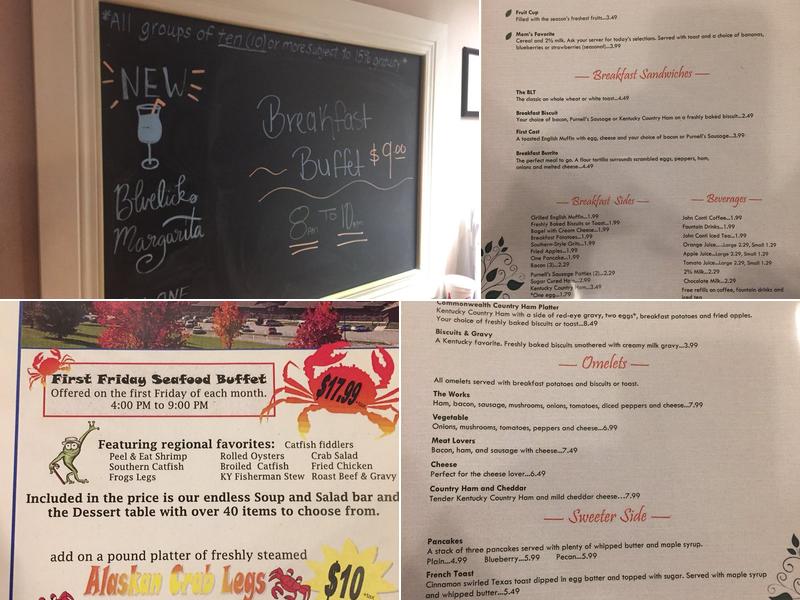 *All groups of ten (10) or more subject to 15% gratuity*
NEW
Bluelicks
Margarita
ONE
Breakfast
Buffet $9.00
8am TO 10am
Fruit Cup
Filled with the season's freshest fruits...3.49
Mom's Favorite
Cereal and 2% milk. Ask your server for today's selections. Served with toast and a choice of bananas,
blueberries or strawberries (seasonal)...3.99
Breakfast Sandwiches
The BLT
The classic on whole wheat or white toast...4.49
Breakfast Biscuit
Your choice of bacon, Purnell's Sausage or Kentucky Country Ham on a freshly baked biscuit...2.49
First Cast
A toasted English Muffin with egg, cheese and your choice of bacon or Purnell's Sausage...3.99
Breakfast Burrito
The perfect meal to go. A flour tortilla surrounds scrambled eggs, peppers, ham,
onions and melted cheese...4.49
Breakfast Sides
Grilled English Muffin...1.99
Freshly Baked Biscuits or Toast...1.99
Bagel with Cream Cheese...1.99
Breakfast Potatoes...1.99
Southern-Style Grits...1.99
Fried Apples...1.99
One Pancake...1.99
Bacon (3)...2.29
Purnell's Sausage Patties (2)...2.29
Sugar Cured Ham...2.99
Kentucky Country Ham...3.49
*One egg...1.29
Beverages
John Conti Coffee...1.99
Fountain Drinks...1.99
John Conti Iced Tea...1.99
Orange Juice...Large 2.29, Small 1.29
Apple Juice...Large 2.29, Small 1.29
Tomato Juice...Large 2.29, Small 1.29
2% Milk...2.29
Chocolate Milk...2.29
Free refills on coffee, fountain drinks and
iced tea
First Friday Seafood Buffet
Offered on the first Friday of each month.
4:00 PM to 9:00 PM
$17.99 +tax
Featuring regional favorites: Catfish fiddlers
Peel & Eat Shrimp Rolled Oysters Crab Salad
Southern Catfish Broiled Catfish Fried Chicken
Frogs Legs KY Fisherman Stew Roast Beef & Gravy
Included in the price is our endless Soup and Salad bar and
the Dessert table with over 40 items to choose from.
add on a pound platter of freshly steamed
Alaskan Crab Legs $10 +tax
Commonwealth Country Ham Platter
Kentucky Country Ham with a side of red-eye gravy, two eggs*, breakfast potatoes and fried apples.
Your choice of freshly baked biscuits or toast...8.49
Biscuits & Gravy
A Kentucky favorite. Freshly baked biscuits smothered with creamy milk gravy...3.99
Omelets
All omelets served with breakfast potatoes and biscuits or toast.
The Works
Ham, bacon, sausage, mushrooms, onions, tomatoes, diced peppers and cheese...7.99
Vegetable
Onions, mushrooms, tomatoes, peppers and cheese...6.99
Meat Lovers
Bacon, ham, and sausage with cheese...7.49
Cheese
Perfect for the cheese lover...6.49
Country Ham and Cheddar
Tender Kentucky Country Ham and mild cheddar cheese...7.99
Sweeter Side
Pancakes
A stack of three pancakes served with plenty of whipped butter and maple syrup.
Plain...4.99 Blueberry...5.99 Pecan...5.99
French Toast
Cinnamon swirled Texas toast dipped in egg batter and topped with sugar. Served with maple syrup
and whipped butter...5.49